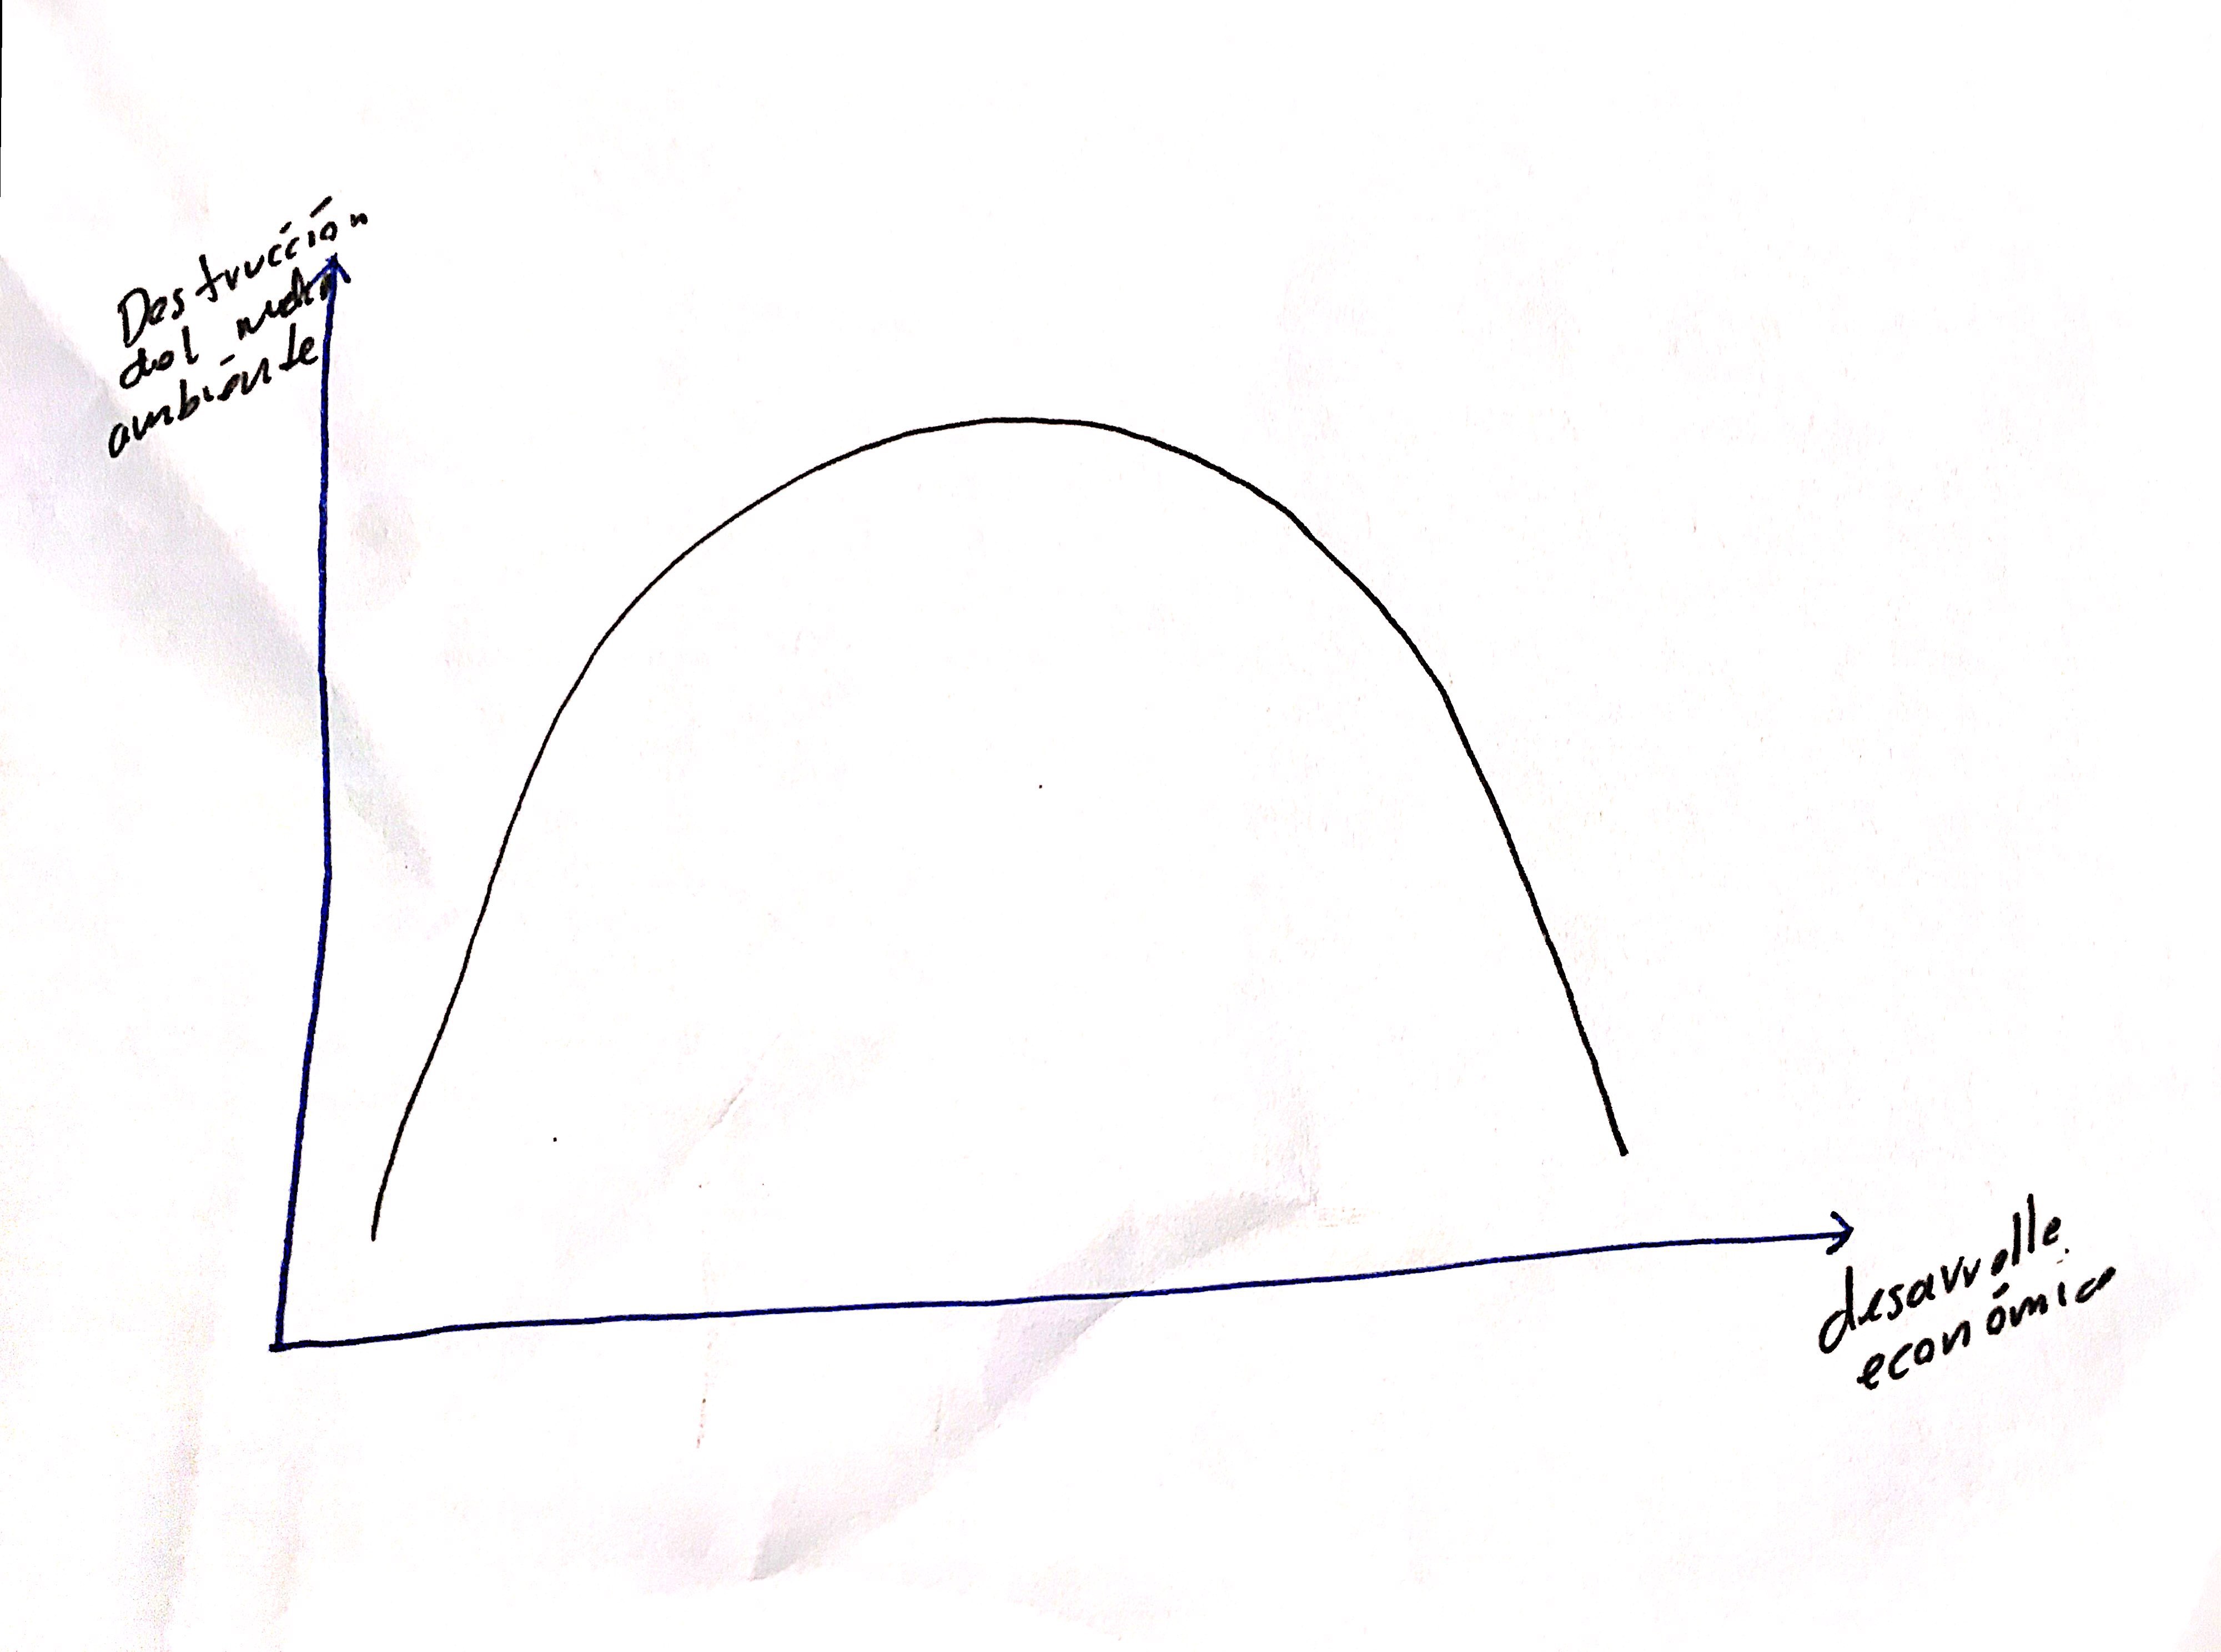 Destrucción
del medio
ambiente
desarrollo
económico